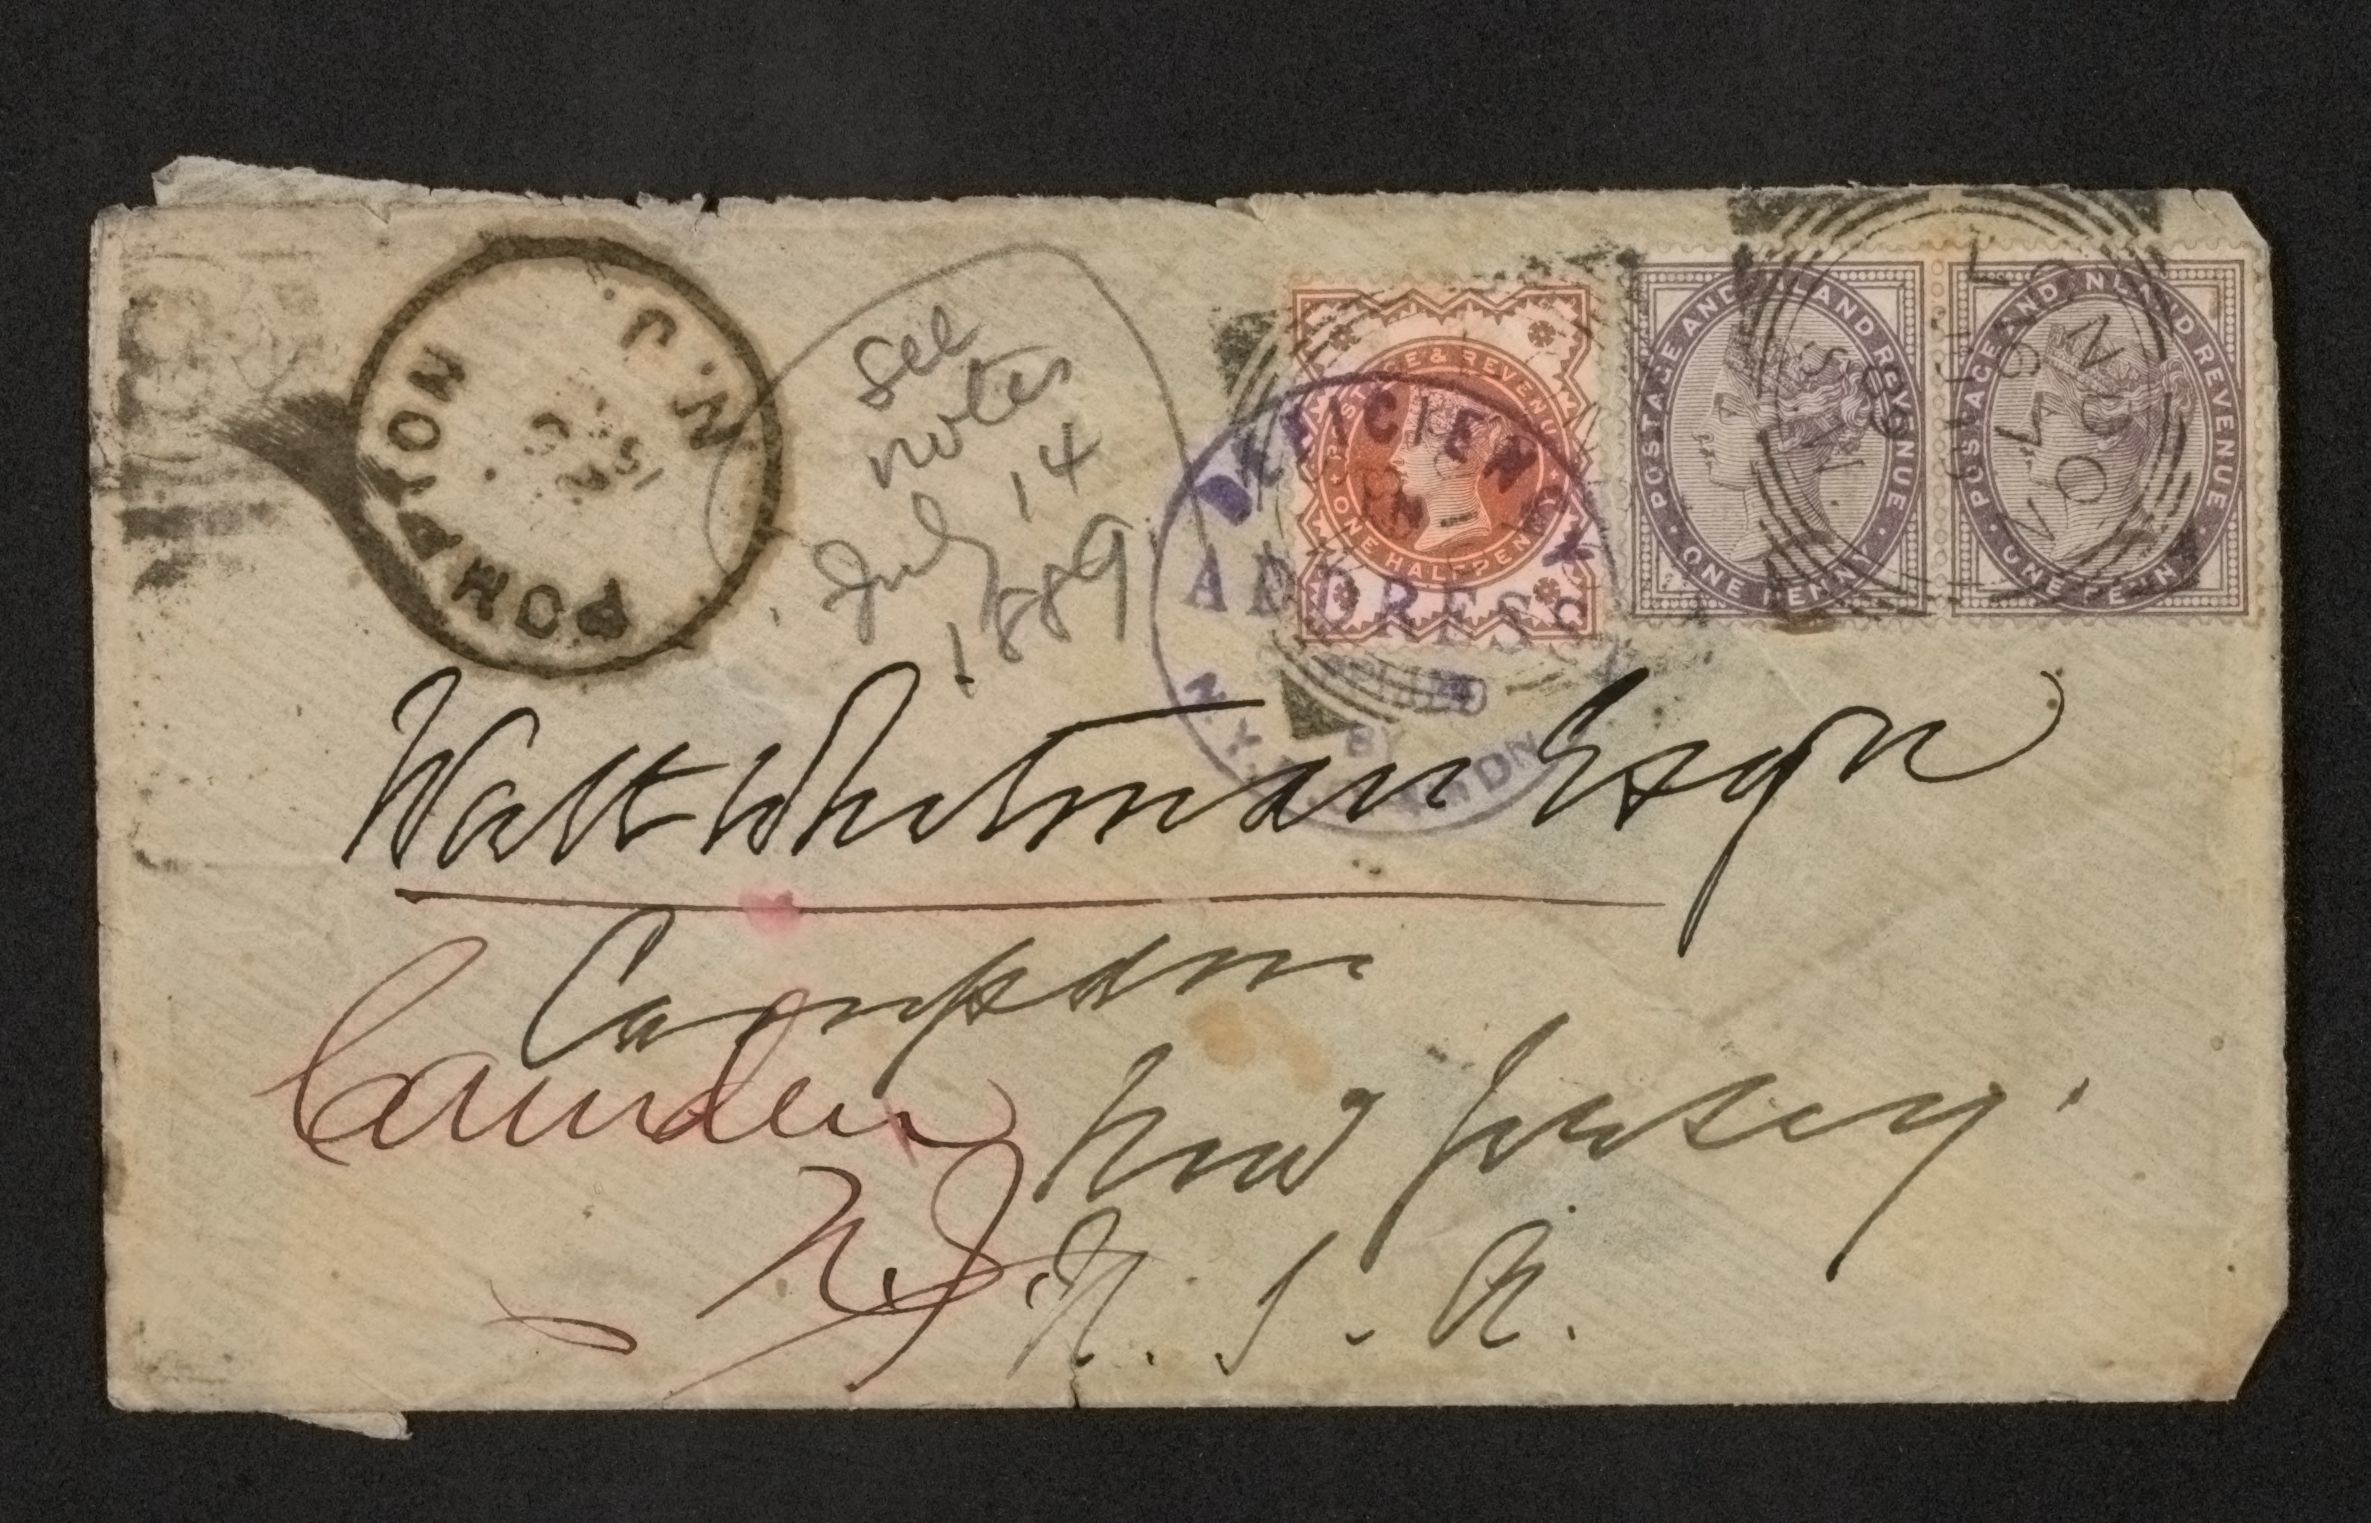 POMPTON N.J.
see
notes
July 14
1889
POSTAGE & REVENUE
ONE HALFPENNY
POSTAGE AND INLAND REVENUE
ONE PENNY
POSTAGE AND INLAND REVENUE
ONE PENNY
LONDON
89
DEFICIENCY
ADDRESS
BY
N.Y.
Walt Whitman Esqre
Campden
Camden
New Jersey.
NJ.
U.S.A.